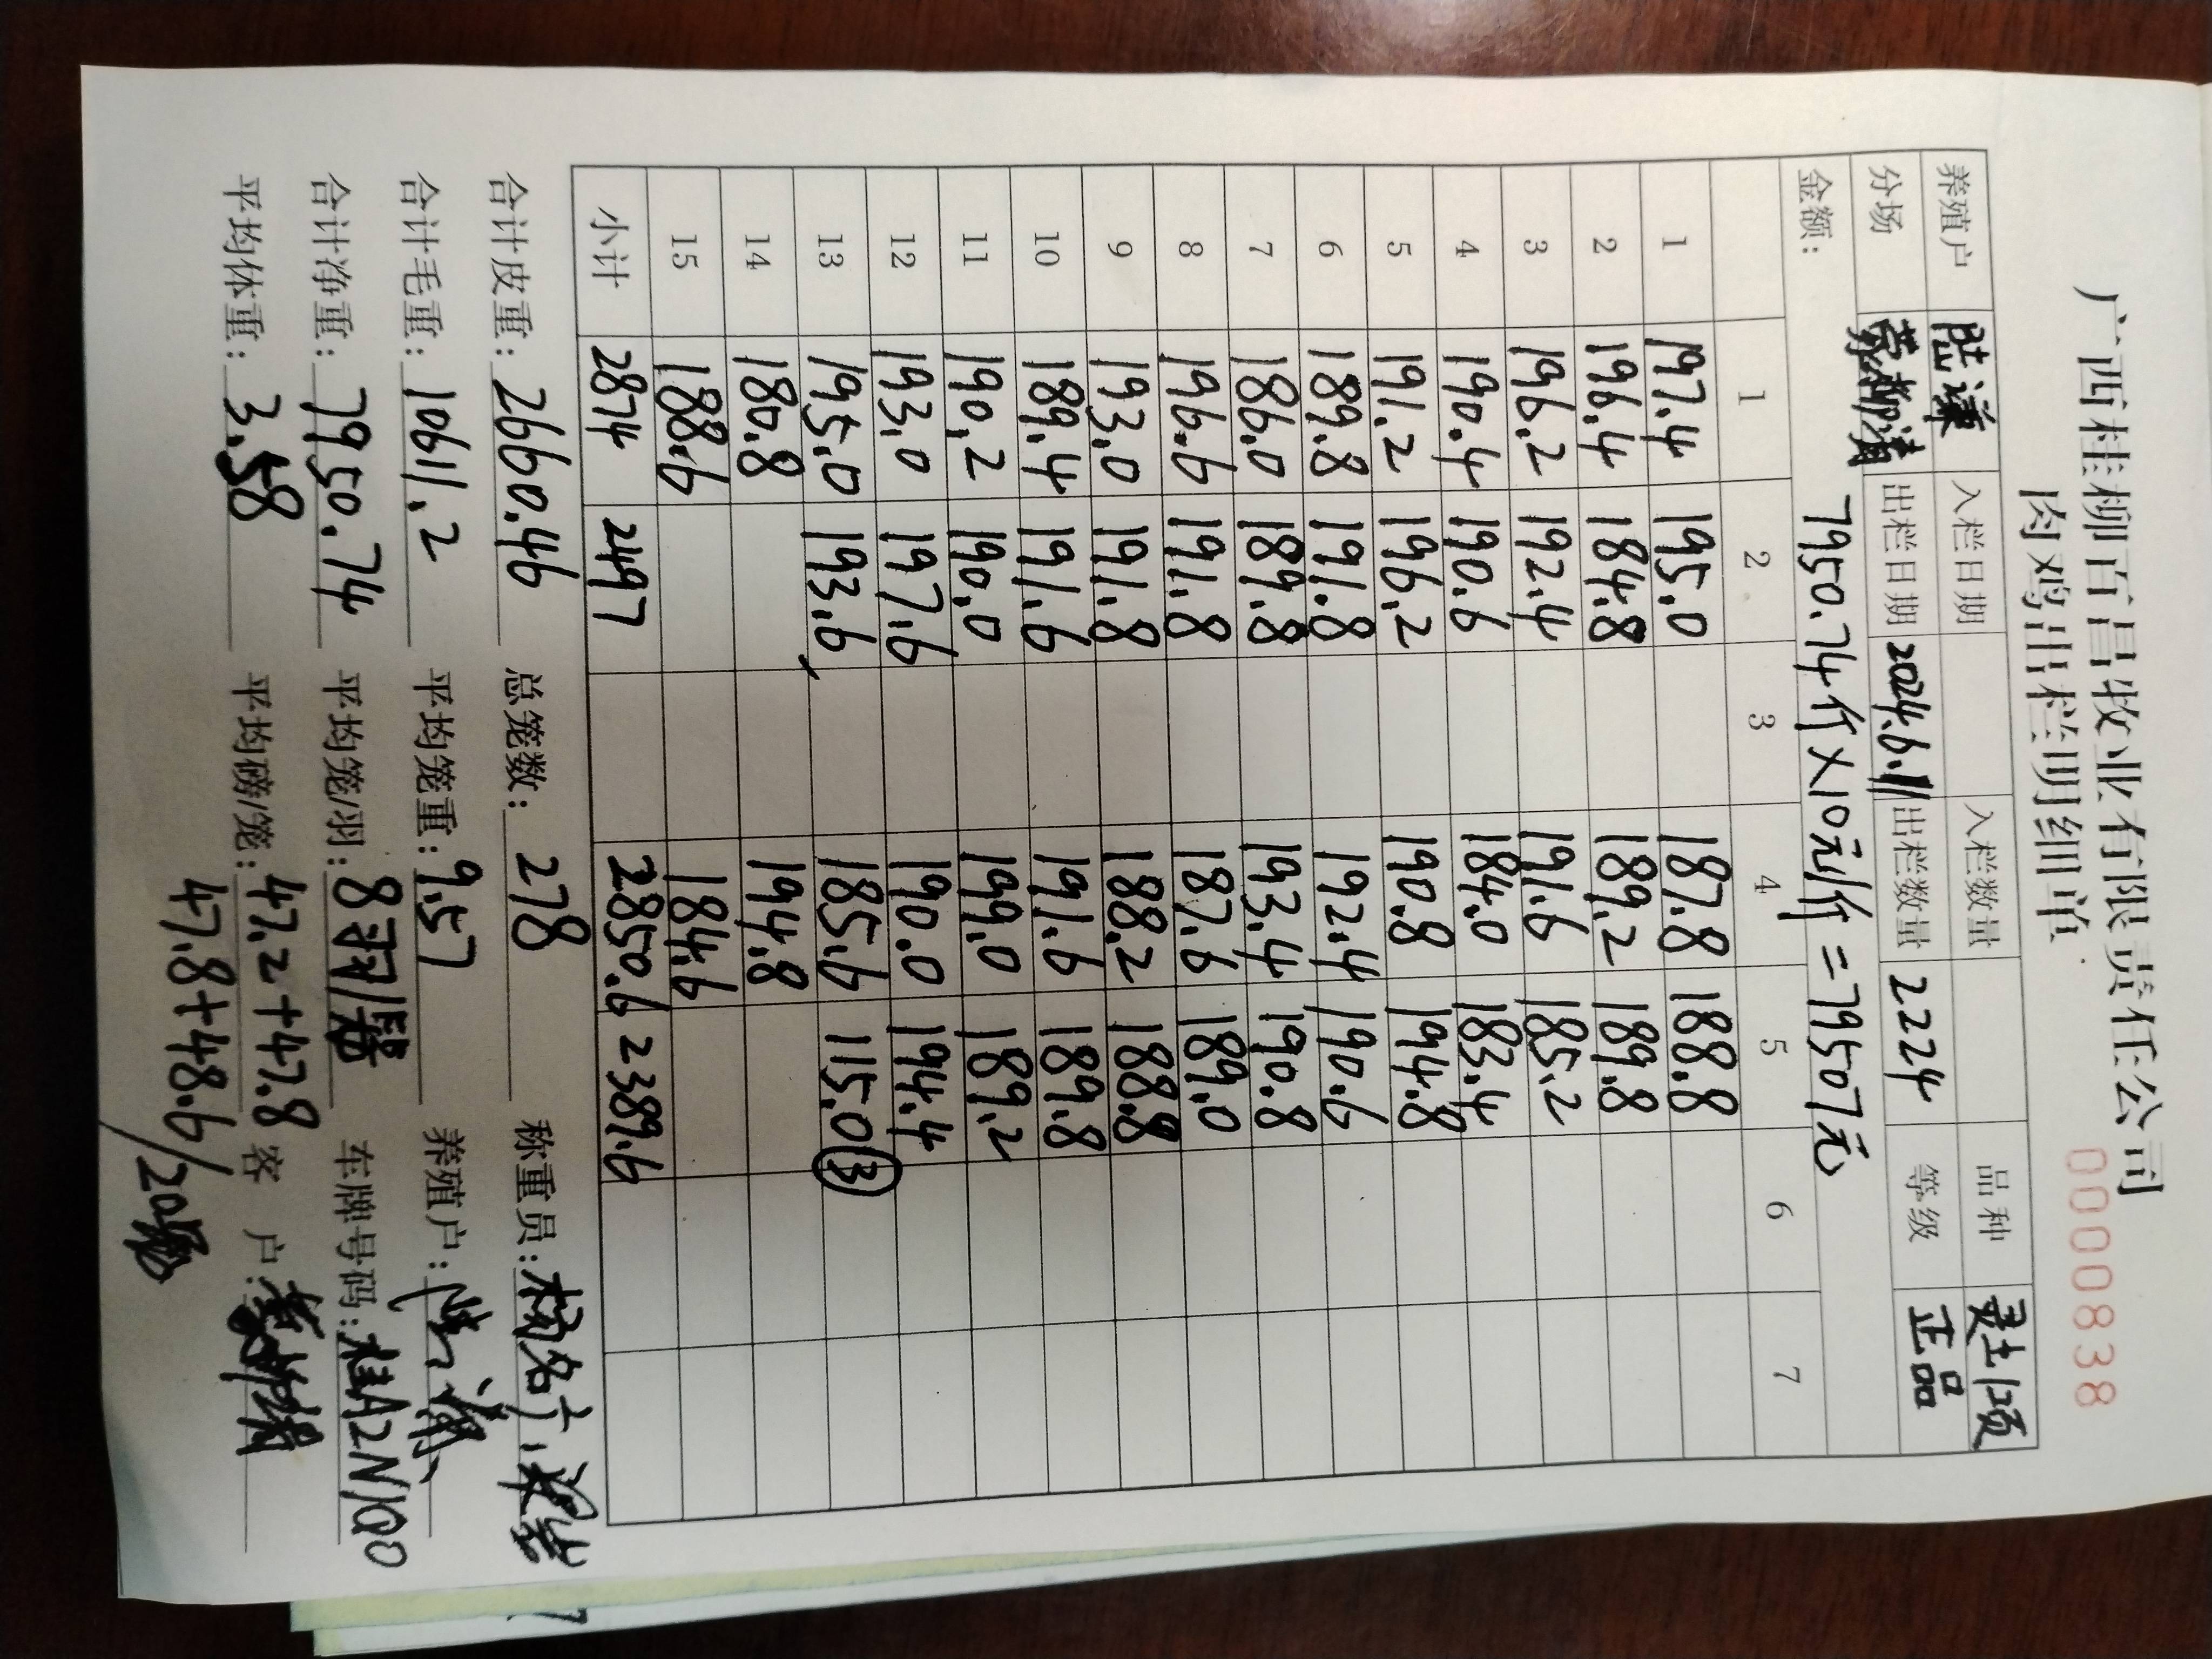 广西桂柳百昌牧业有限责任公司
肉鸡出栏明细单
0000838
养殖户 陆谦 入栏日期 入栏数量 品种 灵土项
分场 出栏日期 2024.6.11 出栏数量 2224 等级 正品
金额: 7950.74斤×10元/斤=79507元
1 2 3 4 5 6 7
1 197.4 195.0 187.8 188.8
2 196.4 184.8 189.2 189.8
3 196.2 192.4 191.6 185.2
4 190.4 190.6 184.0 183.4
5 191.2 196.2 190.8 194.8
6 189.8 191.8 192.4 190.6
7 186.0 189.8 193.4 190.8
8 196.6 191.8 187.6 189.0
9 193.0 191.8 188.2 188.8
10 189.4 191.6 191.6 189.8
11 190.2 190.0 199.0 189.2
12 193.0 197.6 190.0 194.4
13 195.0 193.6 185.6 115.0 ③
14 180.8 194.8
15 188.6 184.6
小计 2874 2497 2850.6 2389.6
合计皮重: 2660.46 总笼数: 278 称重员:
合计毛重: 10611.2 平均笼重: 9.57 养殖户:
合计净重: 7950.74 平均笼/羽: 8羽/笼 车牌号码: 桂A2N100
平均体重: 3.58 平均磅/笼: 47.2+47.8 客 户:
47.8+48.6/20